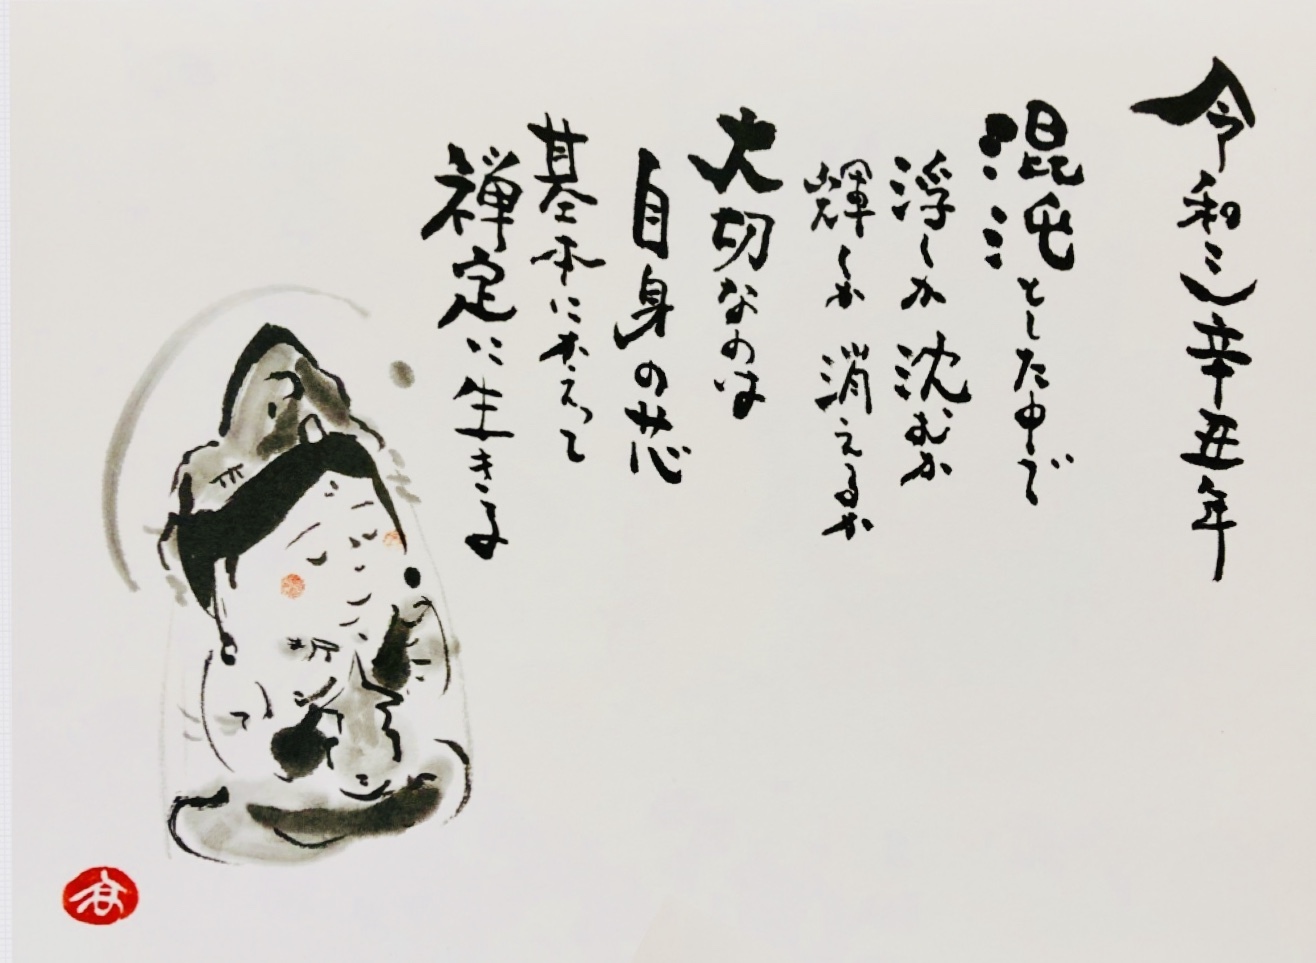 令和三辛丑年
混沌とした中で
浮くか沈むか
輝くか消えるか
大切なのは
自身の芯
基本にかえって
禅定に生きる